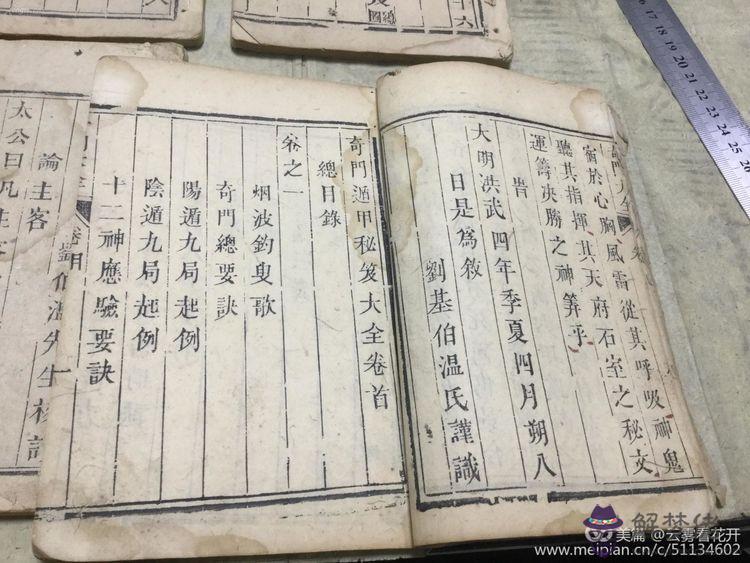 宿於心胸風雷從其呼吸神鬼
聽其指揮其天府石室之秘文
運籌决勝之神筭乎
旹
大明洪武四年季夏四月朔八
日是為敘
劉基伯温氏謹識
奇門遁甲秘笈大全卷首
總目錄
卷之一
烟波釣叟歌
奇門總要訣
陽遁九局起例
陰遁九局起例
十二神應驗要訣
論主客
太公曰凡主客
十六
16 17 18 19 20 21 22 23 24 25 26
解梦佬
美篇 @云雾看花开
www.meipian.cn/c/51134602